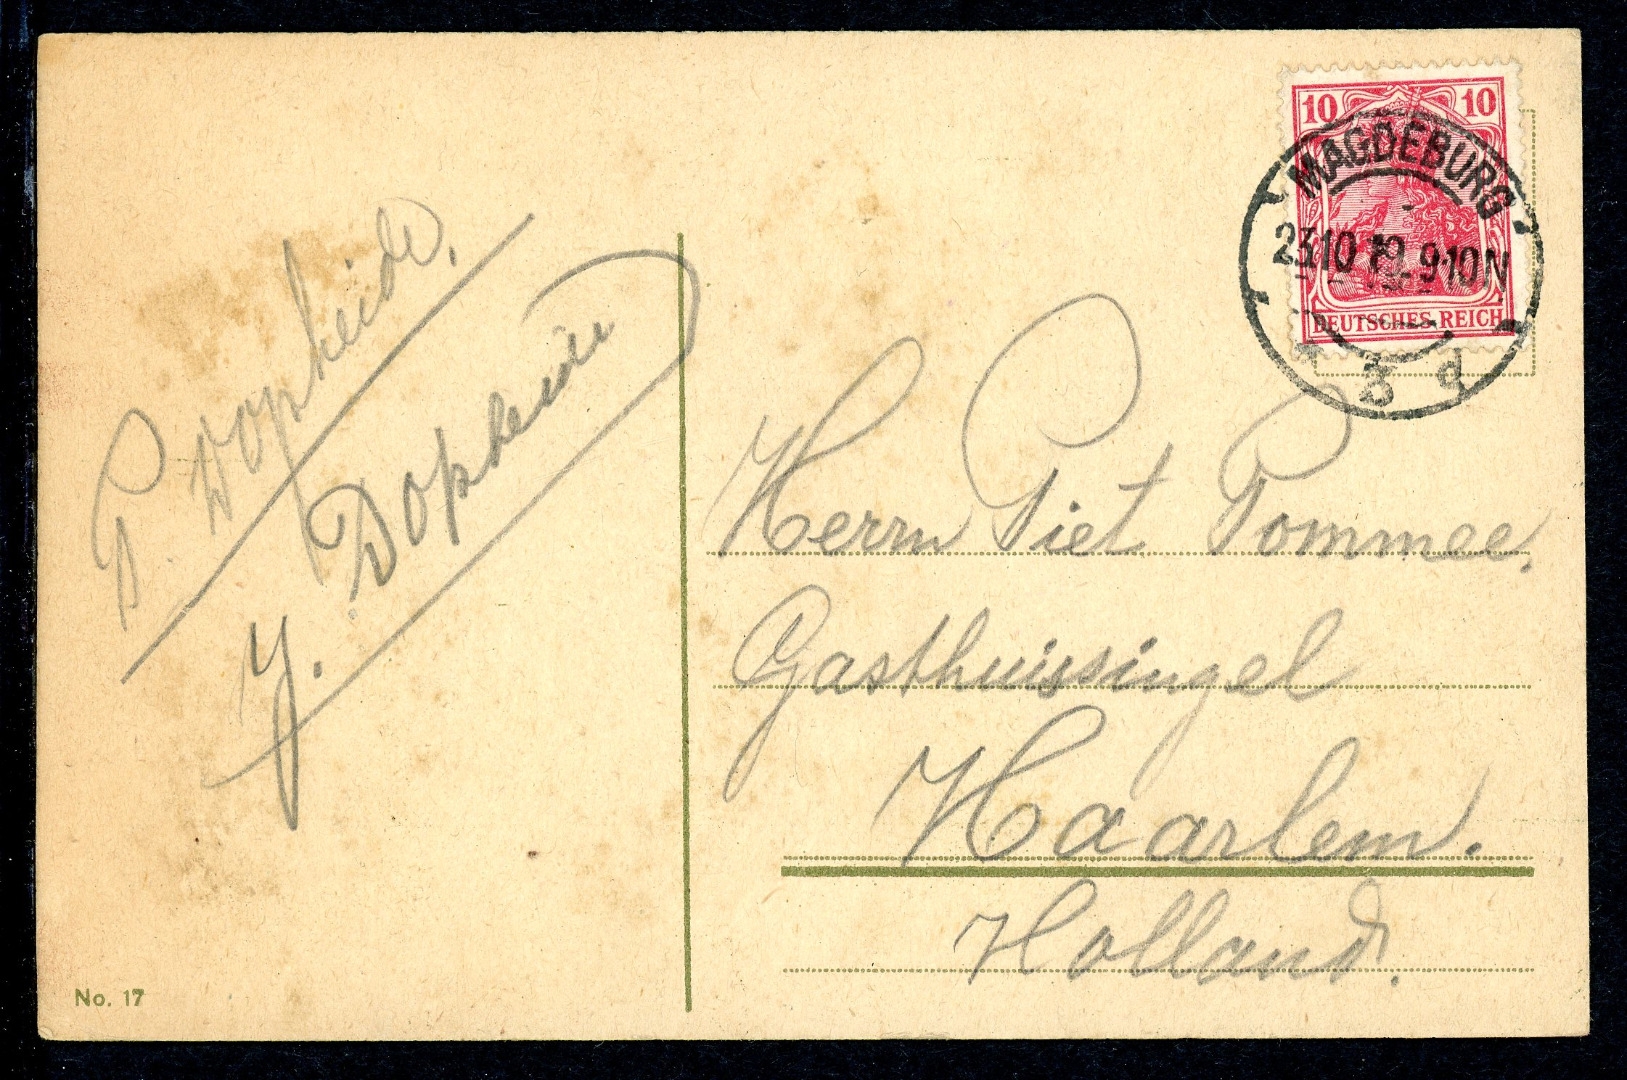 10 10
MAGDEBURG
23.10.12. 9-10N
DEUTSCHES REICH
3 d
P. Dopheide.
J. Dopheide
Herrn Piet Pommee.
Gasthuissingel
Haarlem.
Holland.
No. 17